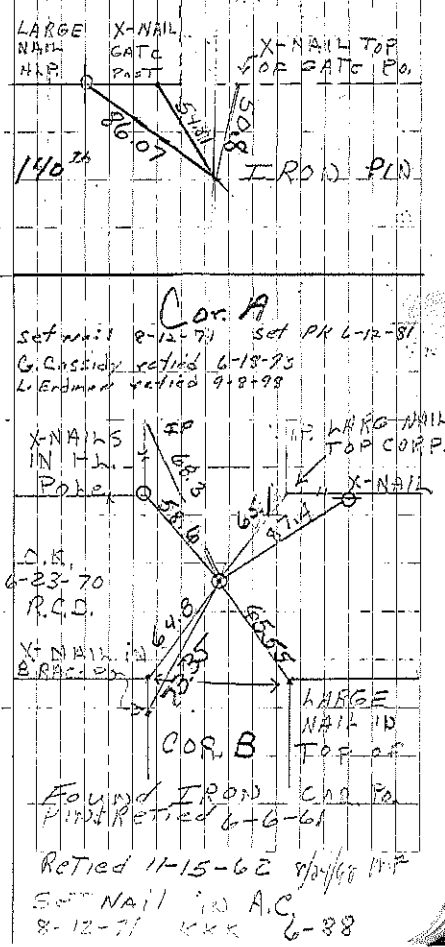 LARGE NAIL H.L.P.
X-NAIL GATE POST
X-NAIL TOP OF GATE PO.
86.07
54.81
50.8
140th
IRON PIN
Cor. A
set nail 8-12-71 set PK 6-12-81
G. Cassidy retied 6-18-75
L. Erdman retied 9-8-98
X-NAILS IN H.L. Pole
68.3
58.6
LARG NAIL TOP COR P.
X-NAIL
65.1
87.4
O.K.
6-23-70
R.C.D.
64.8
73.35
65.55
X-NAIL in BRACE
COR B
LARGE NAIL IN TOP OF
Found IRON
Retied 6-6-61
ReTied 11-15-62
SET NAIL IN A.C.
8-12-71 KKK 6-88